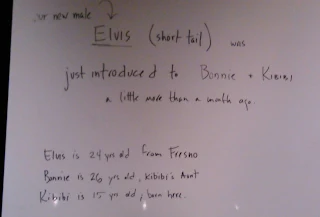 our new male
Elvis (short tail) was
just introduced to Bonnie + Kibibi
a little more than a month ago.
Elvis is 24 yrs old from Fresno
Bonnie is 26 yrs old, Kibibi's Aunt
Kibibi is 15 yrs old, born here.